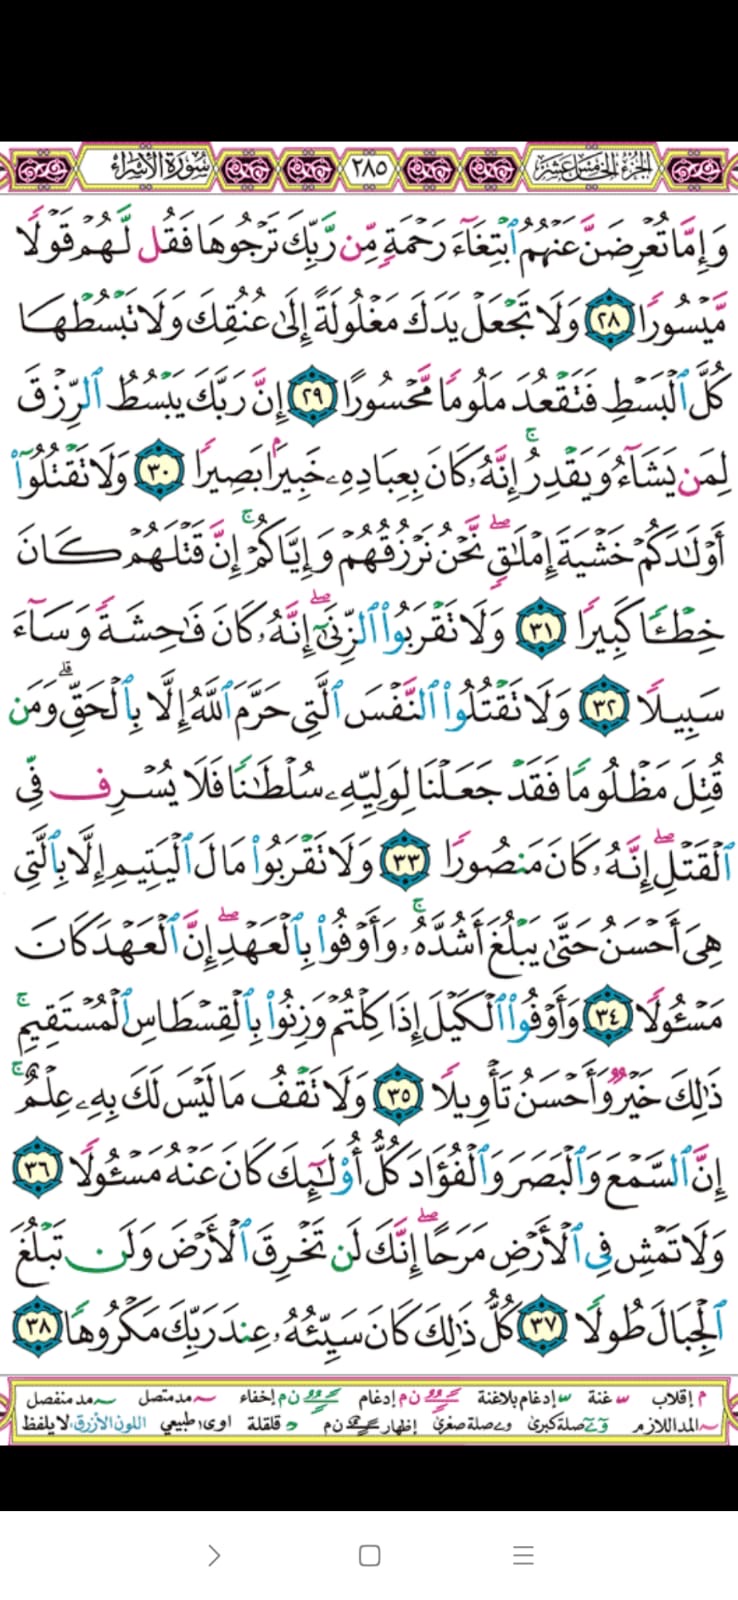 سُورَةُ الإِسْرَاءِ ٢٨٥ الجُزْءُ الخَامِسَ عَشَرَ
وَإِمَّا تُعْرِضَنَّ عَنْهُمُ ٱبْتِغَآءَ رَحْمَةٍ مِّن رَّبِّكَ تَرْجُوهَا فَقُل لَّهُمْ قَوْلًا
مَّيْسُورًا ٢٨ وَلَا تَجْعَلْ يَدَكَ مَغْلُولَةً إِلَىٰ عُنُقِكَ وَلَا تَبْسُطْهَا
كُلَّ ٱلْبَسْطِ فَتَقْعُدَ مَلُومًا مَّحْسُورًا ٢٩ إِنَّ رَبَّكَ يَبْسُطُ ٱلرِّزْقَ
لِمَن يَشَآءُ وَيَقْدِرُ ۚ إِنَّهُۥ كَانَ بِعِبَادِهِۦ خَبِيرًۢا بَصِيرًا ٣٠ وَلَا تَقْتُلُوٓا۟
أَوْلَـٰدَكُمْ خَشْيَةَ إِمْلَـٰقٍ ۖ نَّحْنُ نَرْزُقُهُمْ وَإِيَّاكُمْ ۚ إِنَّ قَتْلَهُمْ كَانَ
خِطْـًٔا كَبِيرًا ٣١ وَلَا تَقْرَبُوا۟ ٱلزِّنَىٰٓ ۖ إِنَّهُۥ كَانَ فَـٰحِشَةً وَسَآءَ
سَبِيلًا ٣٢ وَلَا تَقْتُلُوا۟ ٱلنَّفْسَ ٱلَّتِى حَرَّمَ ٱللَّهُ إِلَّا بِٱلْحَقِّ ۗ وَمَن
قُتِلَ مَظْلُومًا فَقَدْ جَعَلْنَا لِوَلِيِّهِۦ سُلْطَـٰنًا فَلَا يُسْرِف فِّى
ٱلْقَتْلِ ۖ إِنَّهُۥ كَانَ مَنصُورًا ٣٣ وَلَا تَقْرَبُوا۟ مَالَ ٱلْيَتِيمِ إِلَّا بِٱلَّتِى
هِىَ أَحْسَنُ حَتَّىٰ يَبْلُغَ أَشُدَّهُۥ ۚ وَأَوْفُوا۟ بِٱلْعَهْدِ ۖ إِنَّ ٱلْعَهْدَ كَانَ
مَسْـُٔولًا ٣٤ وَأَوْفُوا۟ ٱلْكَيْلَ إِذَا كِلْتُمْ وَزِنُوا۟ بِٱلْقِسْطَاسِ ٱلْمُسْتَقِيمِ ۚ
ذَٰلِكَ خَيْرٌ وَأَحْسَنُ تَأْوِيلًا ٣٥ وَلَا تَقْفُ مَا لَيْسَ لَكَ بِهِۦ عِلْمٌ ۚ
إِنَّ ٱلسَّمْعَ وَٱلْبَصَرَ وَٱلْفُؤَادَ كُلُّ أُو۟لَـٰٓئِكَ كَانَ عَنْهُ مَسْـُٔولًا ٣٦
وَلَا تَمْشِ فِى ٱلْأَرْضِ مَرَحًا ۖ إِنَّكَ لَن تَخْرِقَ ٱلْأَرْضَ وَلَن تَبْلُغَ
ٱلْجِبَالَ طُولًا ٣٧ كُلُّ ذَٰلِكَ كَانَ سَيِّئُهُۥ عِندَ رَبِّكَ مَكْرُوهًا ٣٨
م إقلاب غنة إدغام بلاغنة ن م إدغام ن م إخفاء مد متصل مد منفصل
المد اللازم صلة كبرى صلة صغرى إظهار ن م قلقلة اوى طبيعي اللون الأزرق: لا يلفظ